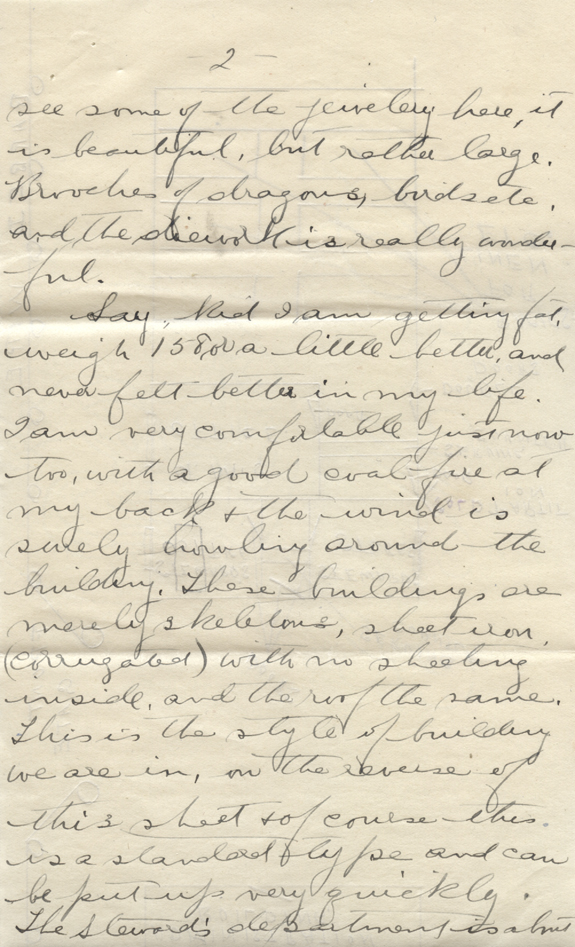 -2-
see some of the jewelery here, it
is beautiful, but rather large.
Brooches of dragons, birds etc.
and the diework is really wonder-
ful.
Say, Kid I am getting fat,
weigh 158 or a little better, and
never felt better in my life.
I am very comfortable just now
too, with a good coal fire at
my back & the wind is
surely howling around the
building. These buildings are
merely skeletons, sheet iron,
(corrugated) with no sheeting
inside, and the roof the same.
This is the style of building
we are in, on the reverse of
this sheet & of course this
is a standard type and can
be put up very quickly.
The Steward's department is about